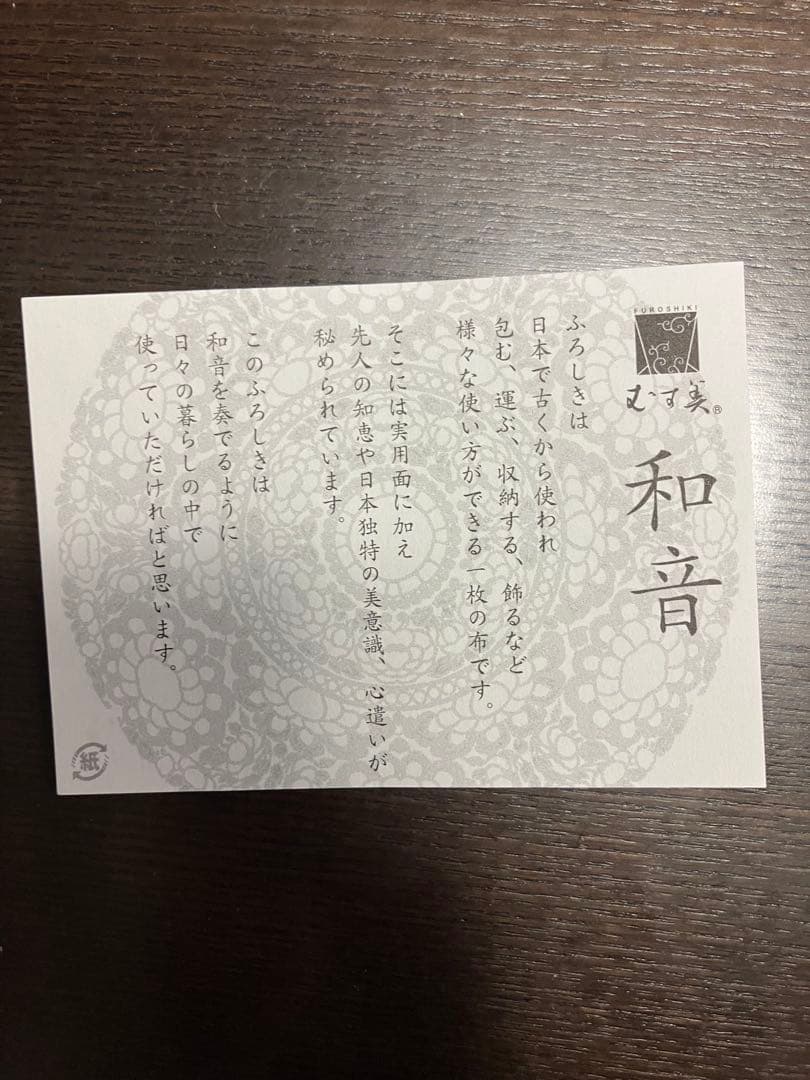 FUROSHIKI
むす美®
和音
ふろしきは
日本で古くから使われ
包む、運ぶ、収納する、飾るなど
様々な使い方ができる一枚の布です。
そこには実用面に加え
先人の知恵や日本独特の美意識、心遣いが
秘められています。
このふろしきは
和音を奏でるように
日々の暮らしの中で
使っていただければと思います。
紙